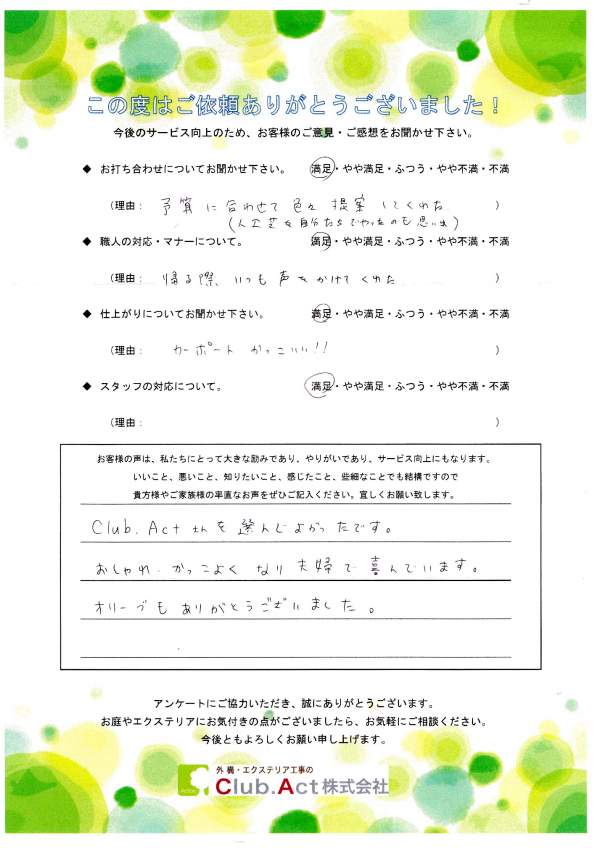 この度はご依頼ありがとうございました！
今後のサービス向上のため、お客様のご意見・ご感想をお聞かせ下さい。
◆ お打ち合わせについてお聞かせ下さい。 満足・やや満足・ふつう・やや不満・不満
（理由： 予算に合わせて色々提案してくれた ）
（人工芝を自分たちでやったのも思い出）
◆ 職人の対応・マナーについて。 満足・やや満足・ふつう・やや不満・不満
（理由： 帰る際、いつも声をかけてくれた ）
◆ 仕上がりについてお聞かせ下さい。 満足・やや満足・ふつう・やや不満・不満
（理由： カーポートかっこいい!! ）
◆ スタッフの対応について。 満足・やや満足・ふつう・やや不満・不満
（理由： ）
お客様の声は、私たちにとって大きな励みであり、やりがいであり、サービス向上にもなります。
いいこと、悪いこと、知りたいこと、感じたこと、些細なことでも結構ですので
貴方様やご家族様の率直なお声をぜひご記入ください。宜しくお願い致します。
Club.Actさんを選んでよかったです。
おしゃれ、かっこよくなり夫婦で喜んでいます。
オリーブもありがとうございました。
アンケートにご協力いただき、誠にありがとうございます。
お庭やエクステリアにお気付きの点がございましたら、お気軽にご相談ください。
今後ともよろしくお願い申し上げます。
外構・エクステリア工事の
Club.Act株式会社